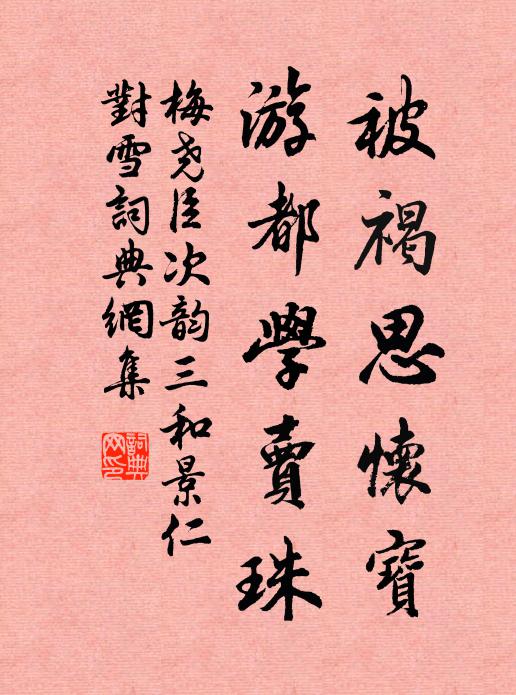 被褐思懷寶
游都學賣珠
梅堯臣次韵三和景仁
對雪詞典網集
詞典网印